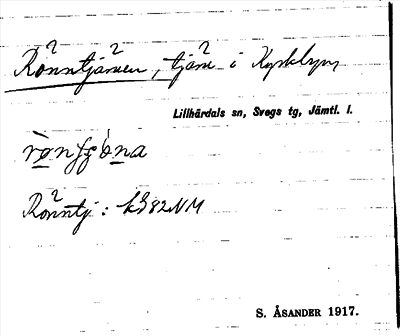 Rönntjärnen, tjärn i Kyrkbyn,
Lillhärdals sn, Svegs tg, Jämtl. l.
Rönntj: k382NM
S. ÅSANDER 1917.